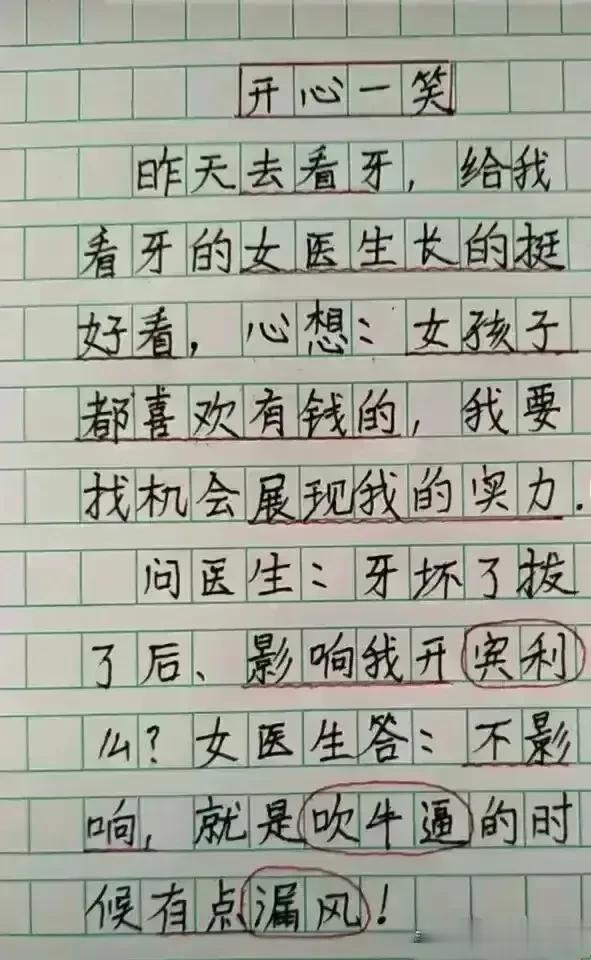 开心一笑
昨天去看牙，给我
看牙的女医生长的挺
好看，心想：女孩子
都喜欢有钱的，我要
找机会展现我的实力.
问医生：牙坏了拔
了后、影响我开宾利
么？女医生答：不影
响，就是吹牛逼的时
候有点漏风！